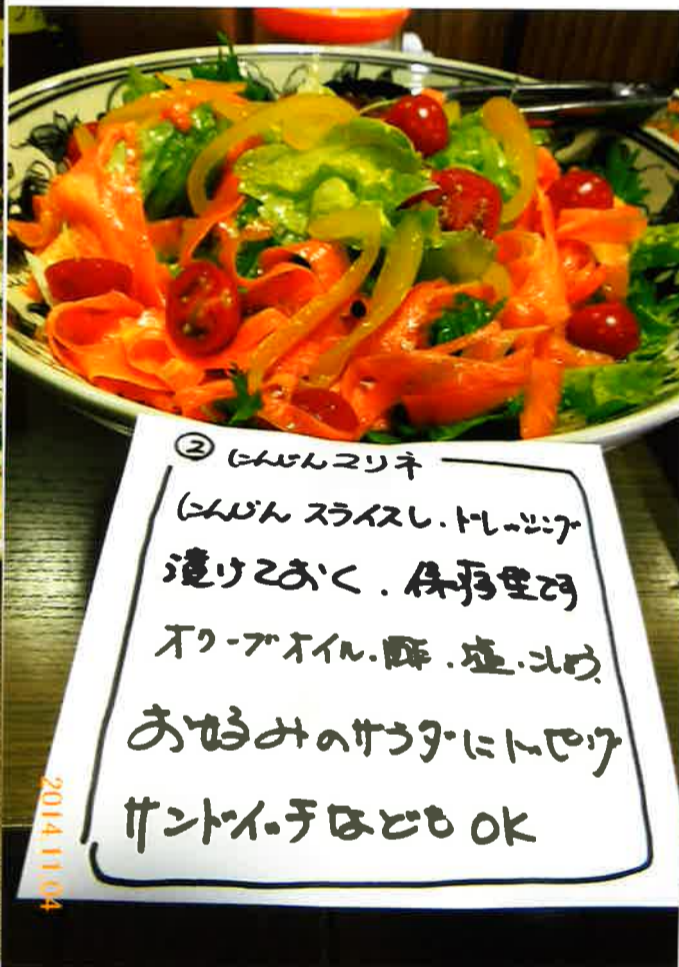 ② にんじんマリネ
にんじん スライスし、ドレッシング
漬けておく、保存型です
オリーブオイル・酢・塩・こしょう、
お好みのサラダにトッピング
サンドイッチなどもOK
2014 11 04